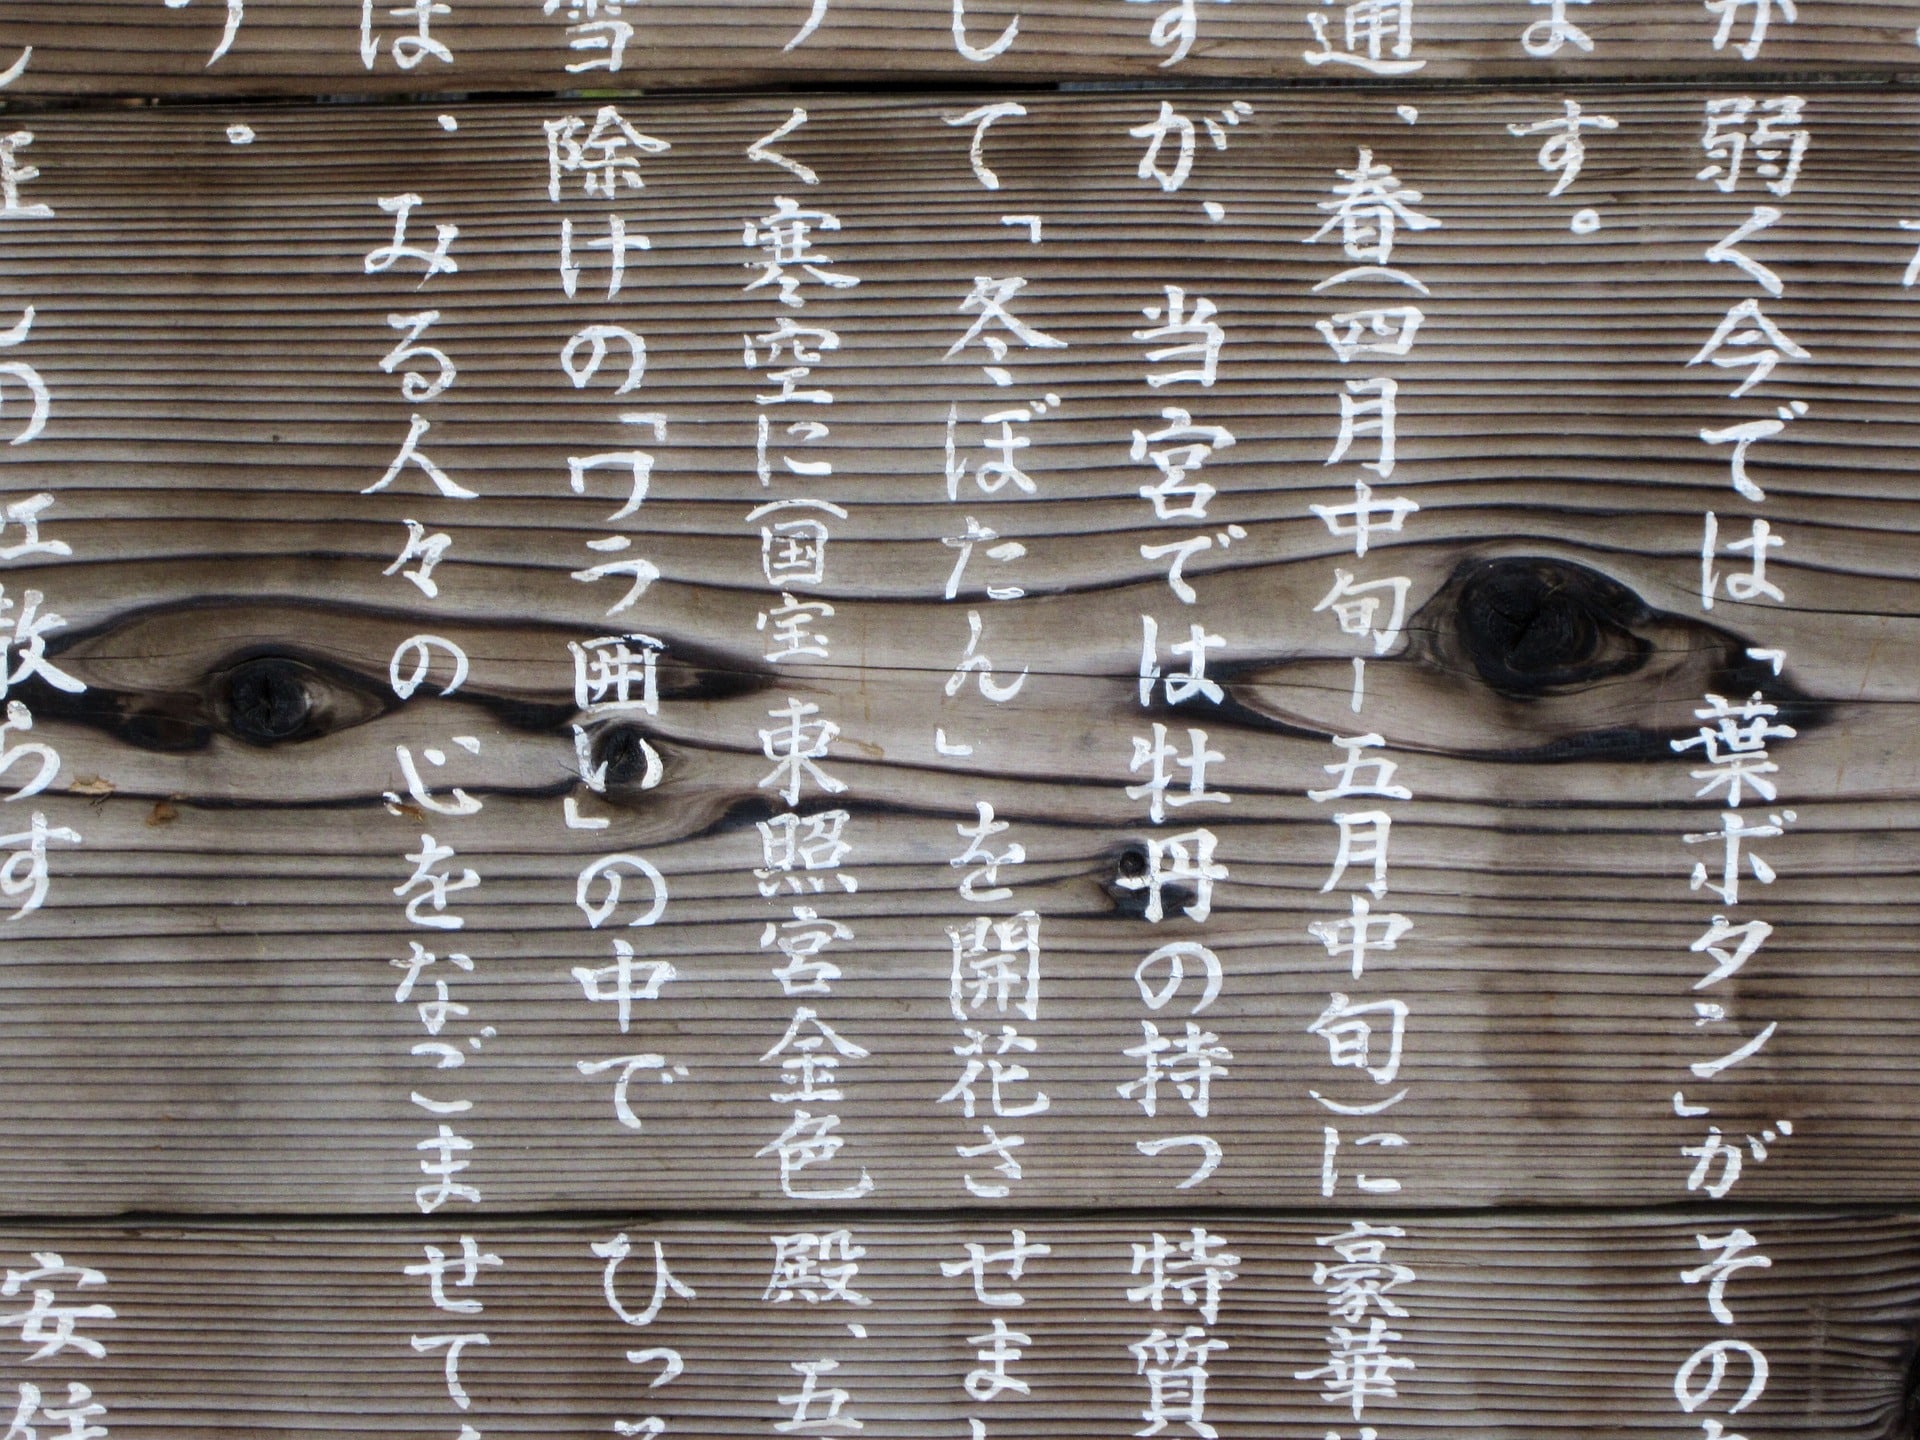 が弱く今では「葉ボタン」がその
ます。
通、春(四月中旬ー五月中旬)に豪華
すが、当宮では牡丹の持つ特質
して「冬、ぼたん」を開花させまし
く寒空に(国宝東照宮金色殿、五
雪除けの「ワラ囲い」の中でひっ
は、みる人々の心をなごませて
う。
散らす安住